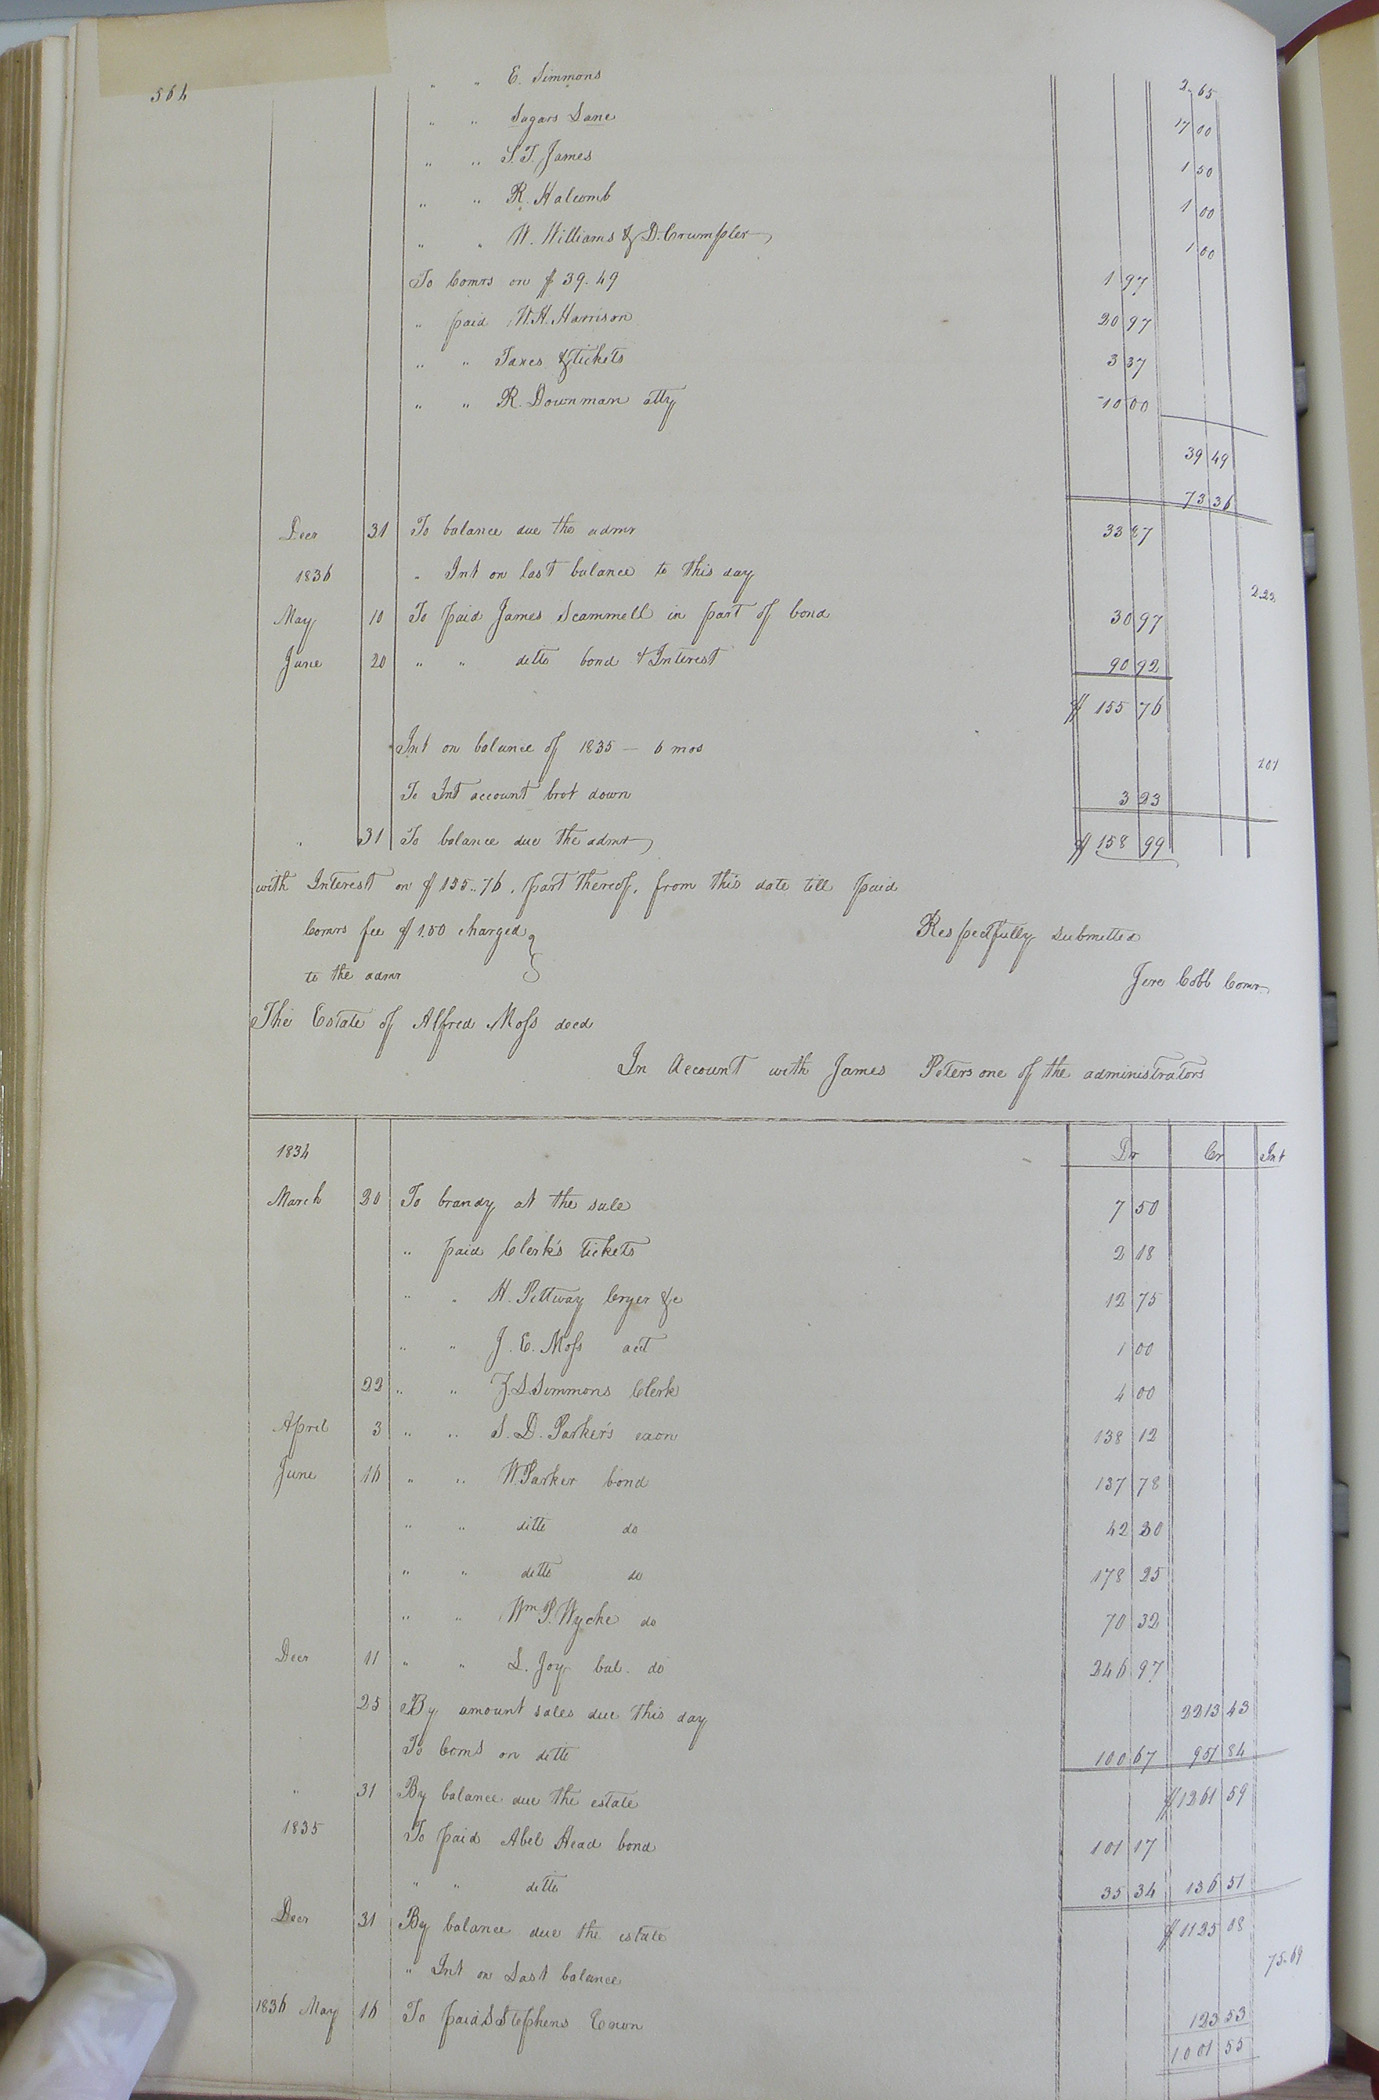 564
" " E. Simmons 2 65
" " Sugars Lane 17 00
" " S.T. James 1 50
" " R. Halcomb 1 00
" " W. Williams & D. Crumpler 1 00
To Comrs on $39.49 1 97
" paid W.H. Harrison 20 97
" " Taxes & tickets 3 37
" " R. Downman atty 10 00
39 49
73 36
Decr 31 To balance due the admr 33 87
1836 " Int on last balance to this day 2.22
May 10 To paid James Scammell in part of bond 30 97
June 20 " " ditto bond & Interest 90 92
$ 155 76
Int on balance of 1835 — 6 mos 101
To Int account brot down 3 23
" 31 To balance due the admr $ 158 99
with Interest on $155.76, part thereof, from this date till paid
Comrs fee $1.50 charged } Respectfully submitted
to the admr Jere Cobb Comr
The Estate of Alfred Moss decd
In Account with James Peters one of the administrators
1834 Dr Cr Int
March 20 To brandy at the sale 7 50
" paid Clerk's tickets 2 18
" " H. Pettway Cryer &c 12 75
" " J. E. Moss acct 1 00
22 " " J.S. Simmons Clerk 4 00
April 3 " " S. D. Parker's exon 138 12
June 16 " " W. Parker bond 137 78
" " ditto do 42 30
" " ditto do 178 25
" " Wm P. Wyche do 70 32
Decr 11 " " L. Joy bal. do 246 97
25 By amount sales due this day 2213 43
To Coms on ditto 100 67 951 84
" 31 By balance due the estate $1261 59
1835 To paid Abel Head bond 101 17
" " ditto 35 34 136 51
Decr 31 By balance due the estate $1125 08
" Int on Last balance 75.69
1836 May 16 To paid S Stephens Exon 123 53
1001 55